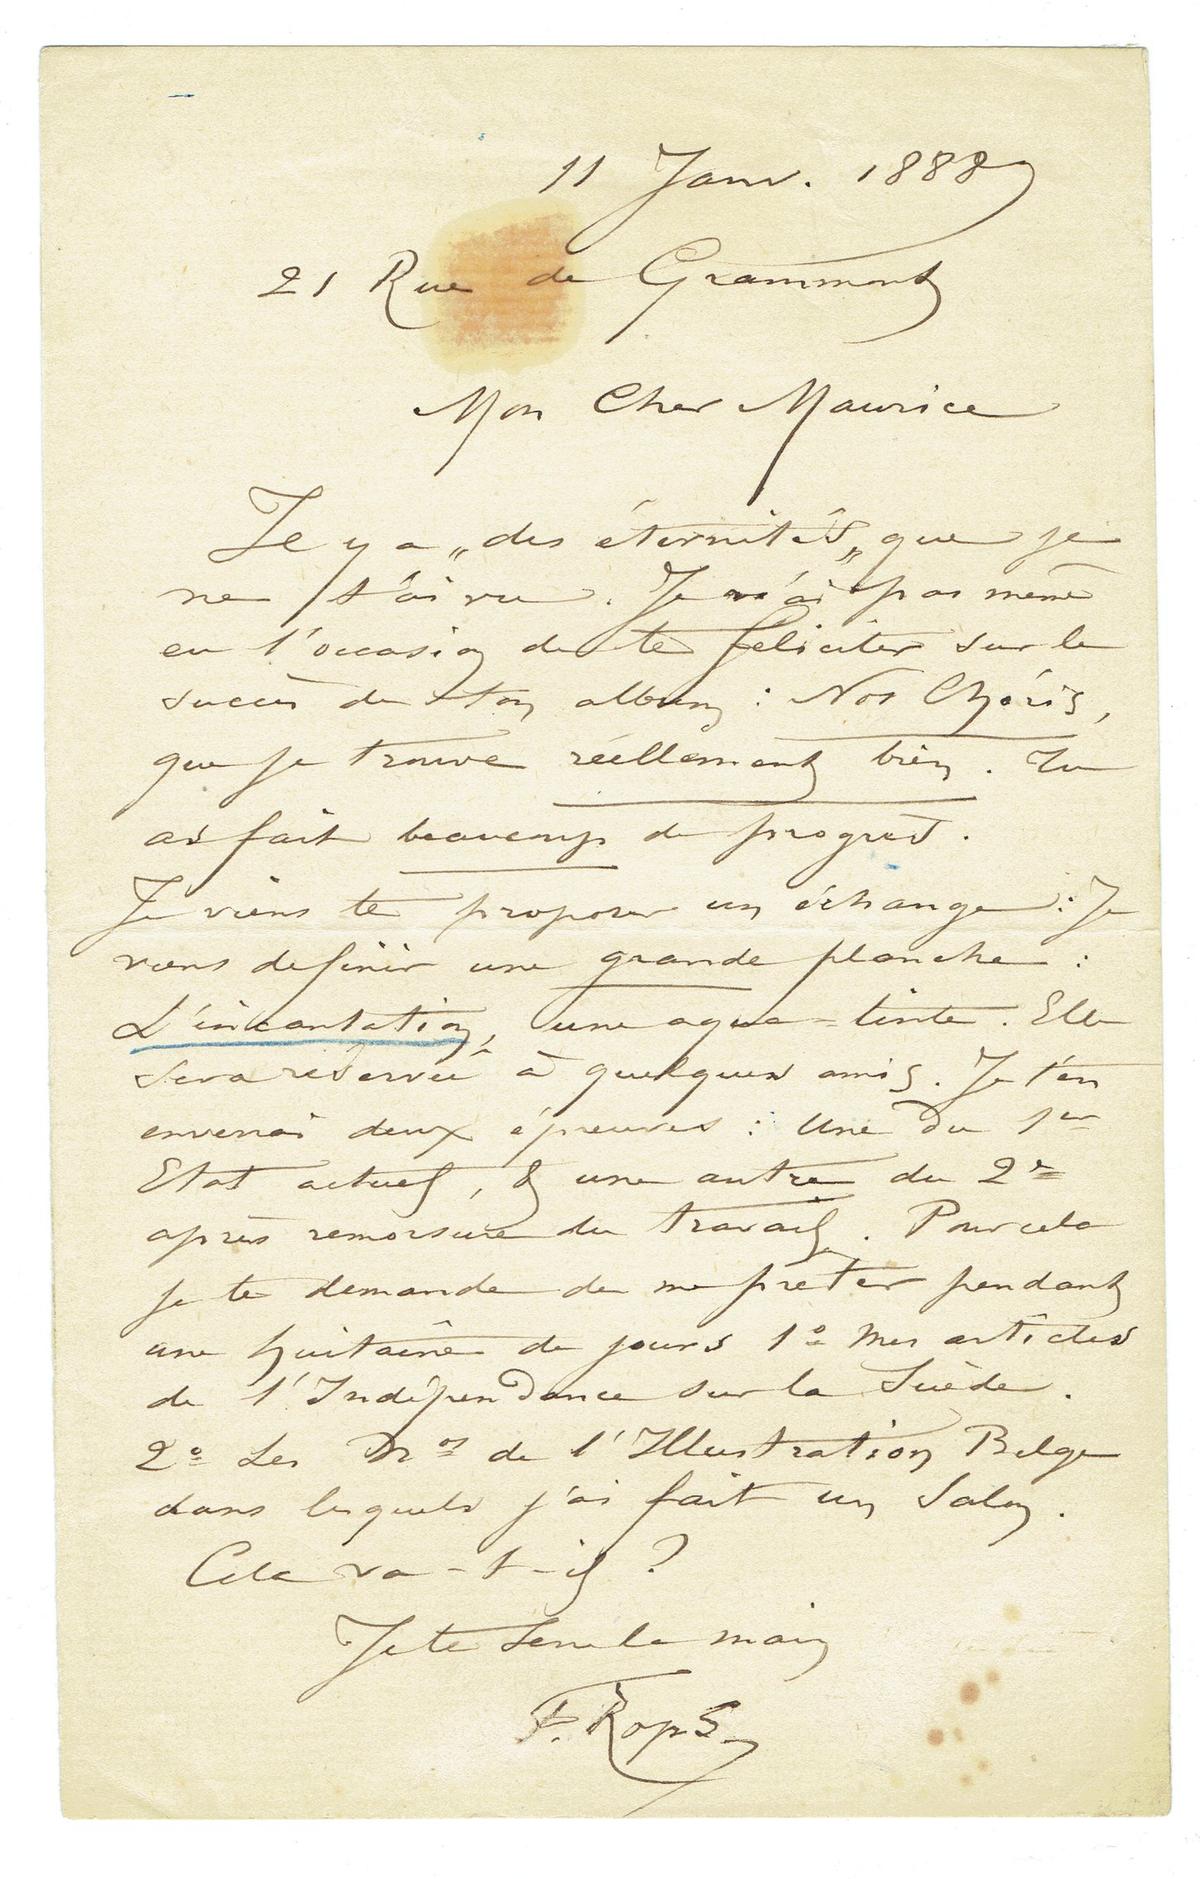 11 Janv. 1888
21 Rue de Grammont
Mon Cher Maurice
Il y a „des éternités„ que je
ne t'ai vu. Je n'ai pas même
eu l'occasion de te feliciter sur le
succès de ton album : Nos Chéris,
que je trouve réellement bien. Tu
as fait beaucoup de progrès.
Je viens te proposer un échange : Je
viens definir une grande planche :
L'incantation, une aqua-tinte. Elle
sera réservée à quelques amis. Je t'en
enverrai deux épreuves : Une du 1er
Etat actuel, & une autre du 2e
après remorsure du travail. Pour cela
je te demande de me preter pendant
une huitaine de jours 1o Mes articles
de l'Indépendance sur la Suède.
2o Les Nos de l'Illustration Belge
dans lesquels j'ai fait un Salon.
Cela va-t-il ?
Je te serre la main
F. Rops